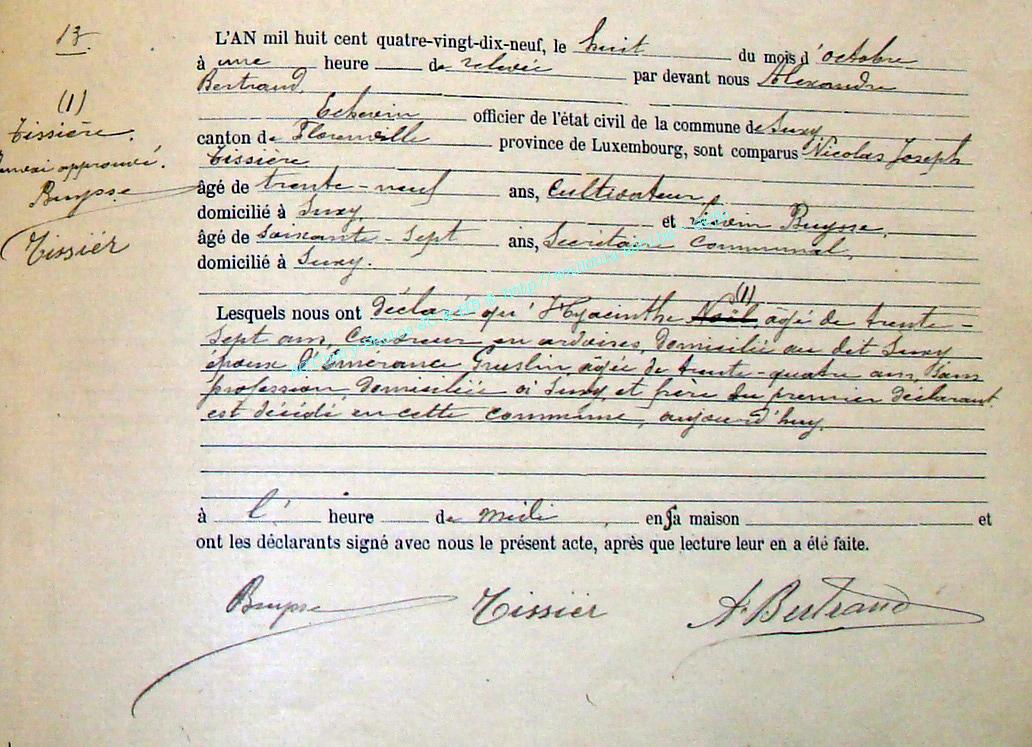 13.
(1)
Tissière.
approuvé.
Buysse
Tissièr
L'AN mil huit cent quatre-vingt-dix-neuf, le huit du mois d'octobre
à une heure de relevée par devant nous Alexandre
Bertrand
Echevin officier de l'état civil de la commune de Suxy
canton de Florenville province de Luxembourg, sont comparus Nicolas Joseph
Tissière
âgé de trente-neuf ans, Cultivateur,
domicilié à Suxy et Buysse,
âgé de soixante-sept ans, Secrétaire Communal,
domicilié à Suxy.
Lesquels nous ont déclaré qu'Hyacinthe Noël (1), âgé de trente-
sept ans, en ardoises, domicilié au dit Suxy
époux d'Emérance âgée de trente-quatre ans, sans
profession domiciliée à Suxy, et frère du premier déclarant
est décédé en cette commune, aujourd'huy,
à l' heure de midi, en sa maison et
ont les déclarants signé avec nous le présent acte, après que lecture leur en a été faite.
Buysse Tissièr A. Bertrand